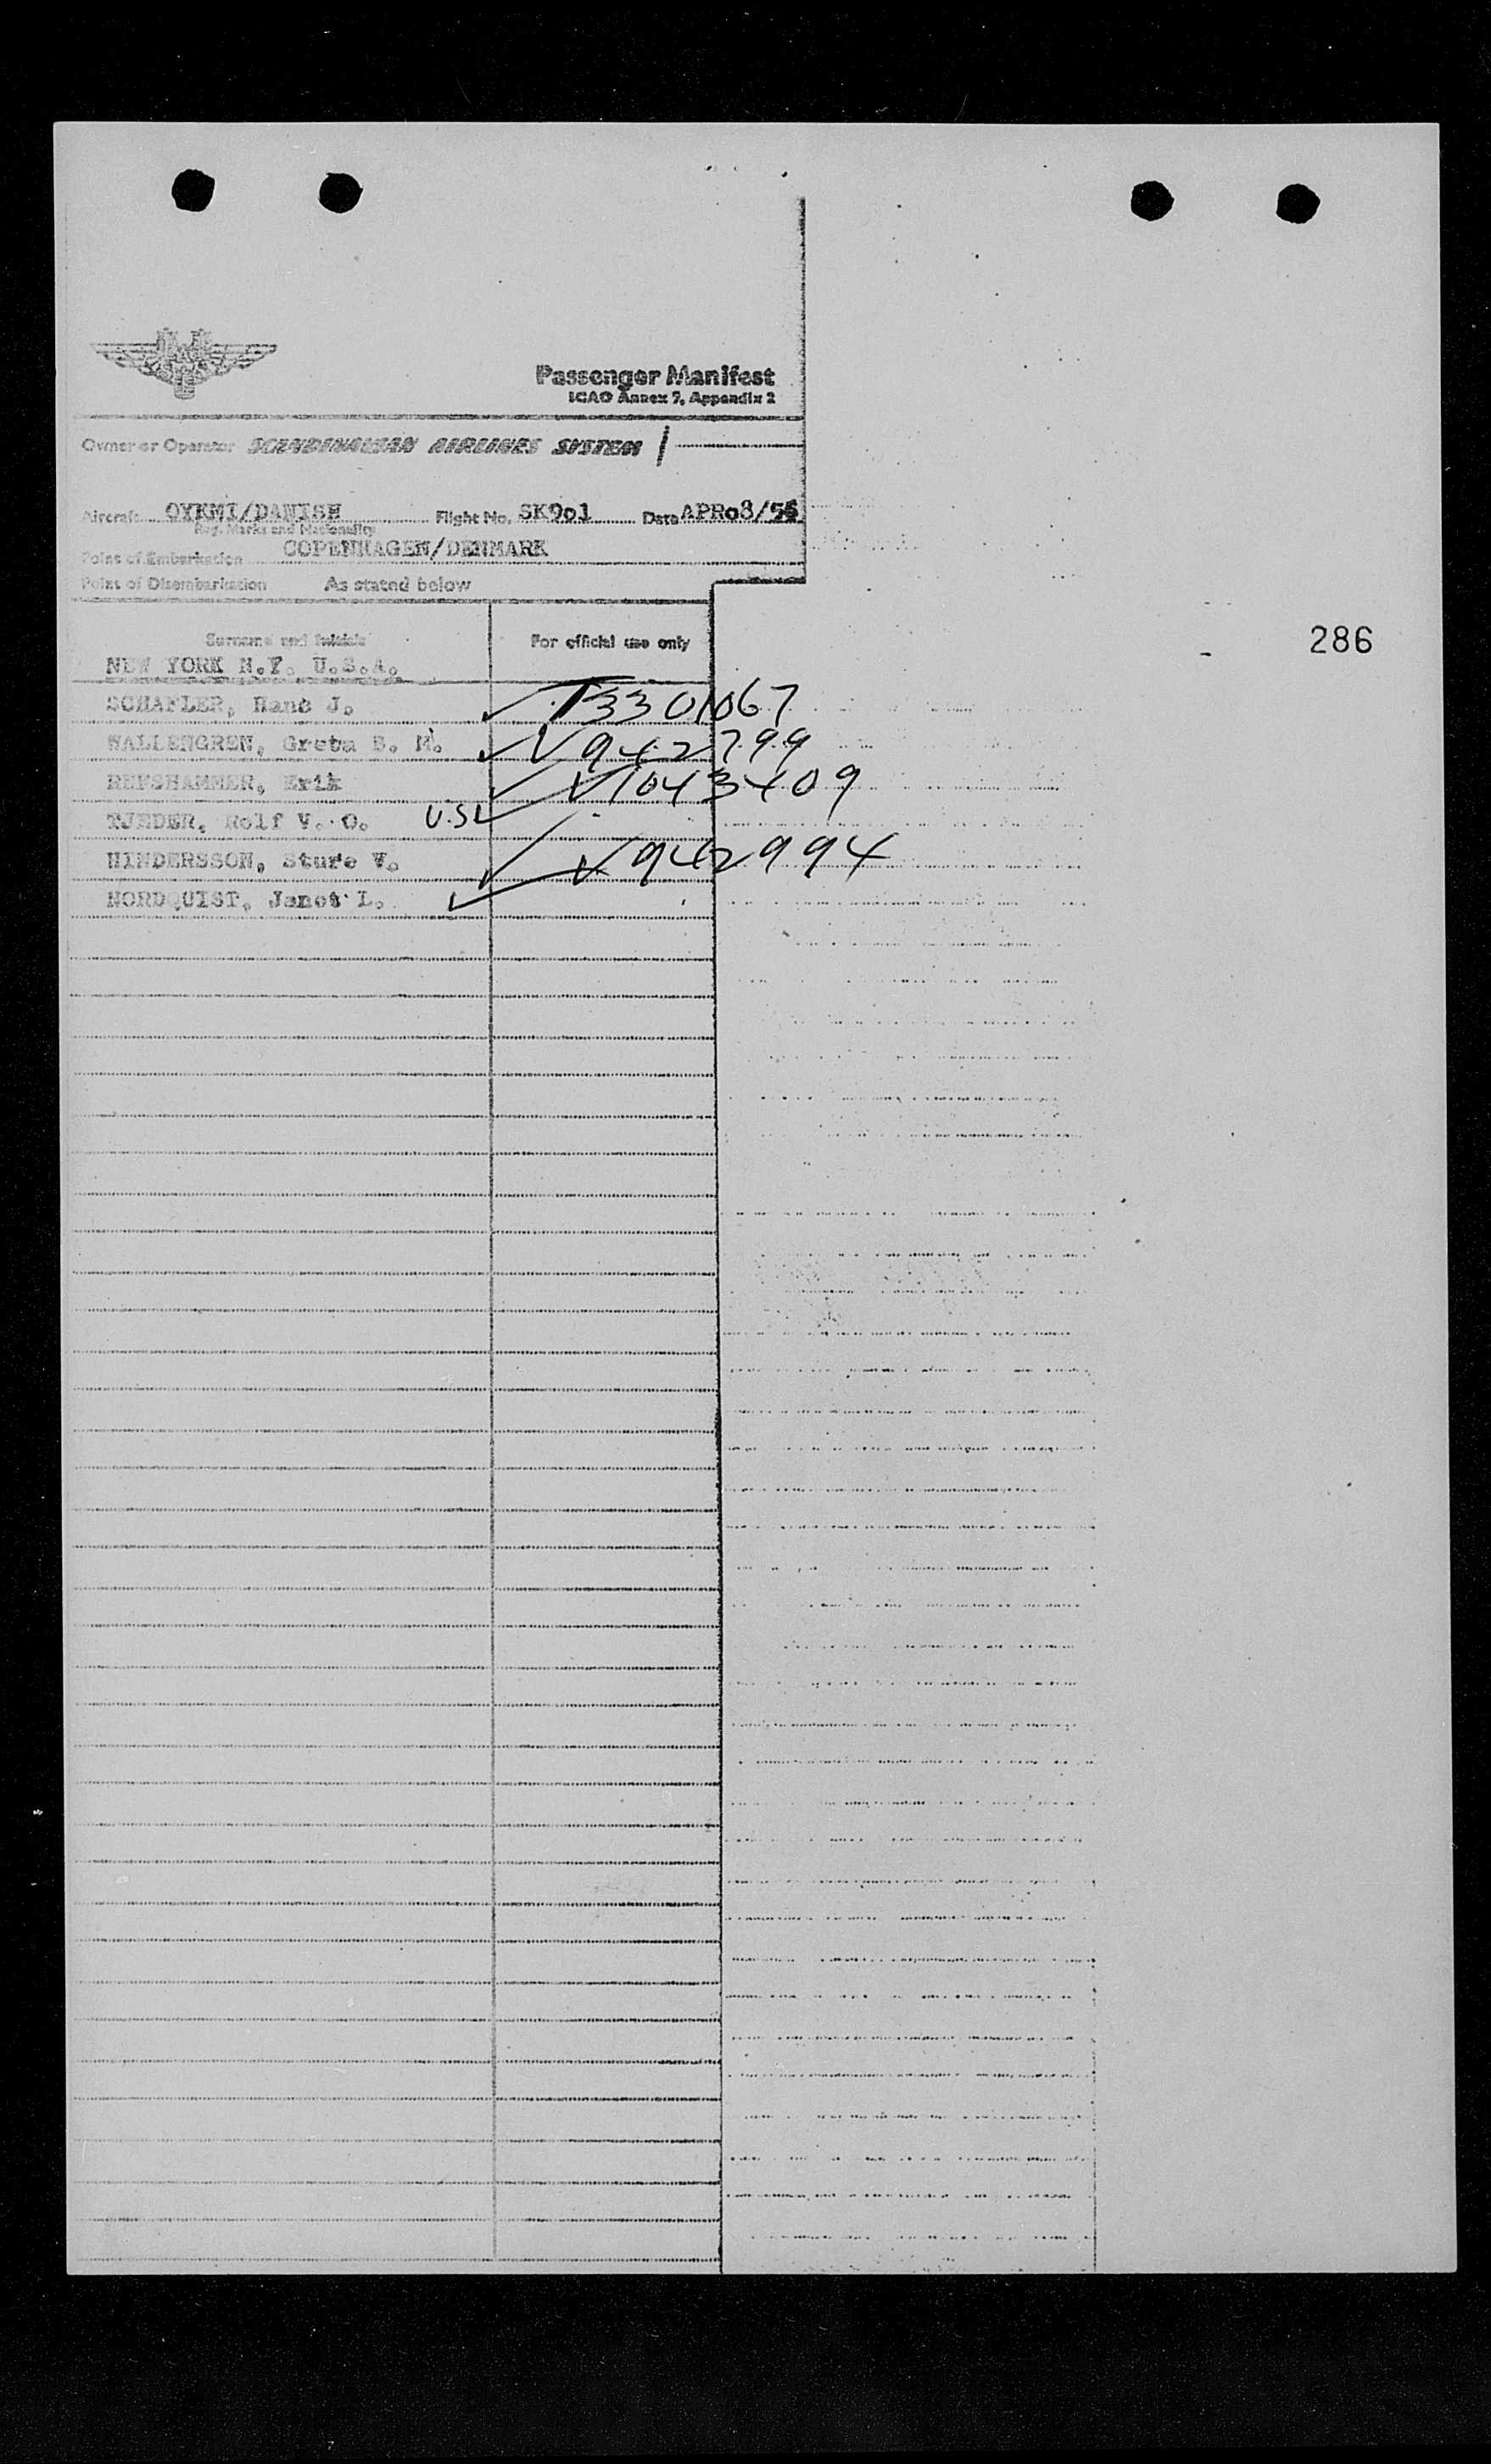 Passenger Manifest
ICAO Annex 9, Appendix 2
Owner or Operator SCANDINAVIAN AIRLINES SYSTEM
Aircraft OYKMI/DANISH Flight No. SK901 Date APR08/56
Reg. Marks and Nationality
Point of Embarkation COPENHAGEN/DENMARK
Point of Disembarkation As stated below
286
Surname and Initials For official use only
NEW YORK N.Y. U.S.A.
SCHAFLER, Hans J. T3301067
WALLENGREN, Greta B. M. V942799
REFSHAMMER, Erik V1043409
TJEDER, Rolf V. O. U.S.
HINDERSSON, Sture V. V942994
NORDQUIST, Janet L.